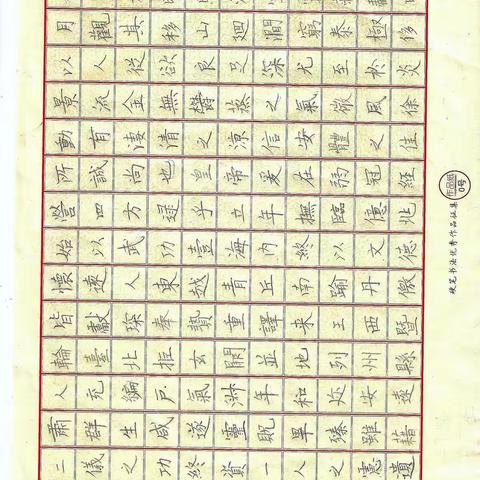 月觀其移山廻澗窮泰極侈
以人從欲良足深尤至於炎
景流金無鬱蒸之氣微風徐
動有淒清之涼信安體之佳
所誠尚也皇帝爰在弱冠經
營四方逮乎立年撫臨億兆
始以武功壹海內終以文德
懷遠人東越青丘南踰丹儌
皆獻琛奉贄重譯來王西暨
輪臺北拒玄闕並地列州縣
人充編戶氣淑年和迩安遠
肅群生咸遂靈貺畢臻雖藉
二儀之功終資一人之慮遺
硬笔书法优秀作品社集
作品纸
0号